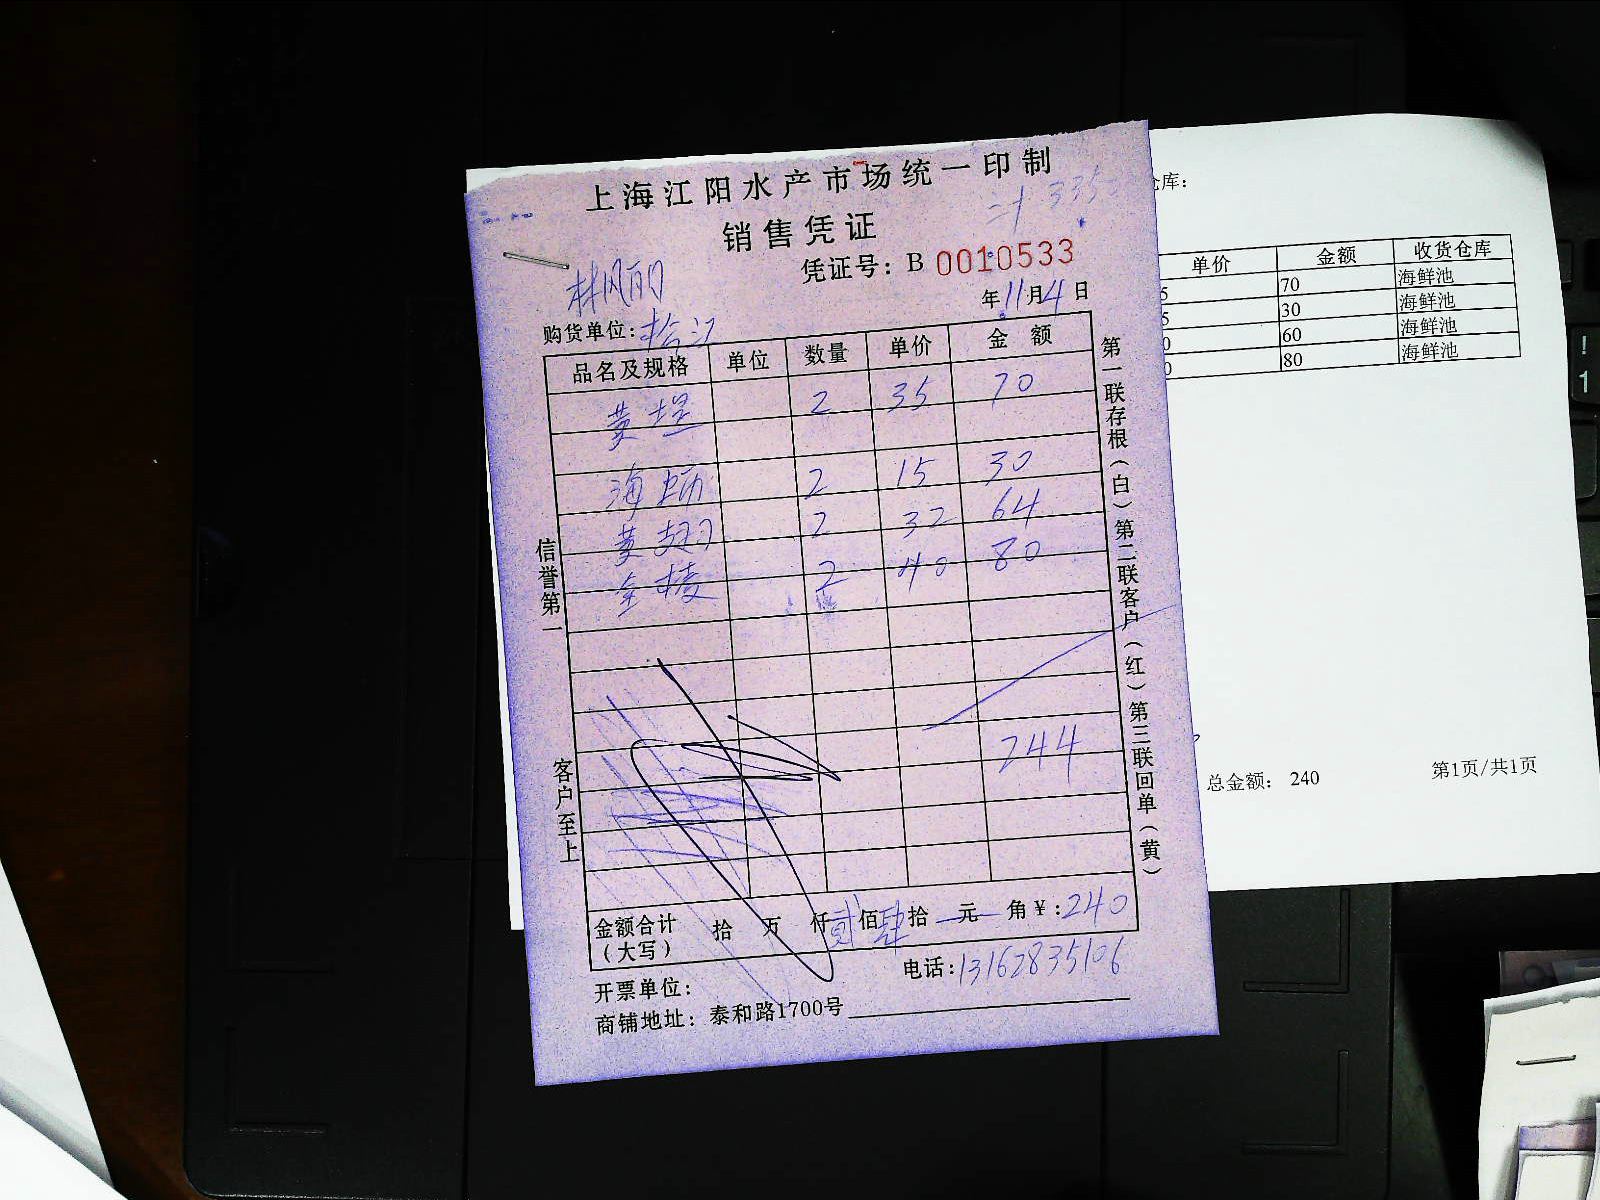 上海江阳水产市场统一印制
销售凭证
凭证号：B 0010533
林凤丽
年11月4日
购货单位：松江
品名及规格 单位 数量 单价 金额
2 35 70
海蛎 2 15 30
黄翅 2 32 64
金棱 2 40 80
244
金额合计（大写） 拾 万 仟贰佰肆拾 元 角￥：240
开票单位：
电话：13162835106
商铺地址：泰和路1700号
信誉第一
客户至上
第一联存根（白）第二联客户（红）第三联回单（黄）
仓库：
单价 金额 收货仓库
5 70 海鲜池
5 30 海鲜池
0 60 海鲜池
0 80 海鲜池
总金额： 240
第1页/共1页